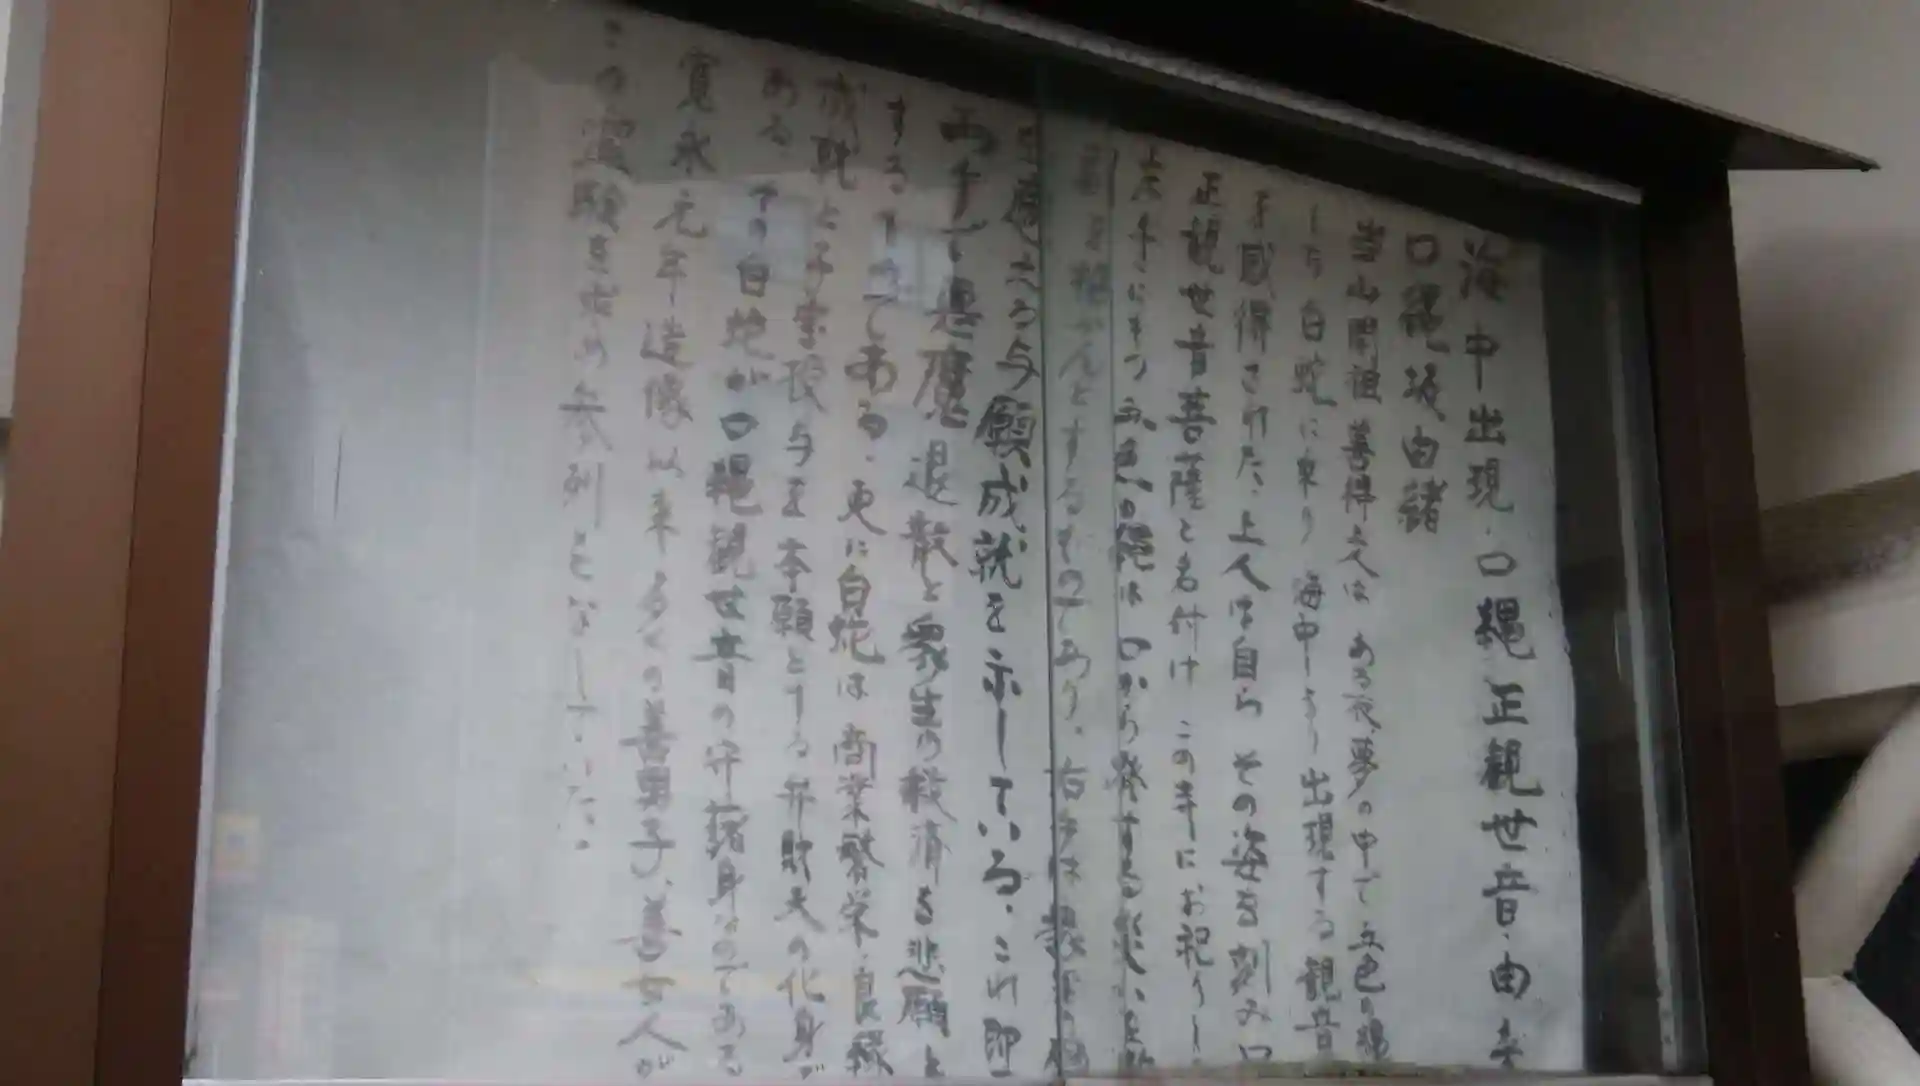 海中出現・口縄正観世音・由来
口縄坂由緒
当山開祖善得上人は ある夜、夢の中で五色の縄
白蛇に乗り 海中より出現する観音
を感得された、上人は自ら その姿を刻み口
正観世音菩薩と名付け この寺にお祀りし
左手にもつ 五色の縄は 口から発する災いを
んとするものであり、右手は 衆生の
たる与願成就を示している、これ即
両手して悪魔退散と衆生の救済を悲願と
するすがたである、更に白蛇は 商業繁栄、良縁
成就と子宝授与を本願とする弁財天の化身で
ある、この白蛇が口縄観世音の守護身なのである
寛永元年造像以来 多くの善男子、善女人が
この霊験を求め参列となしていた、